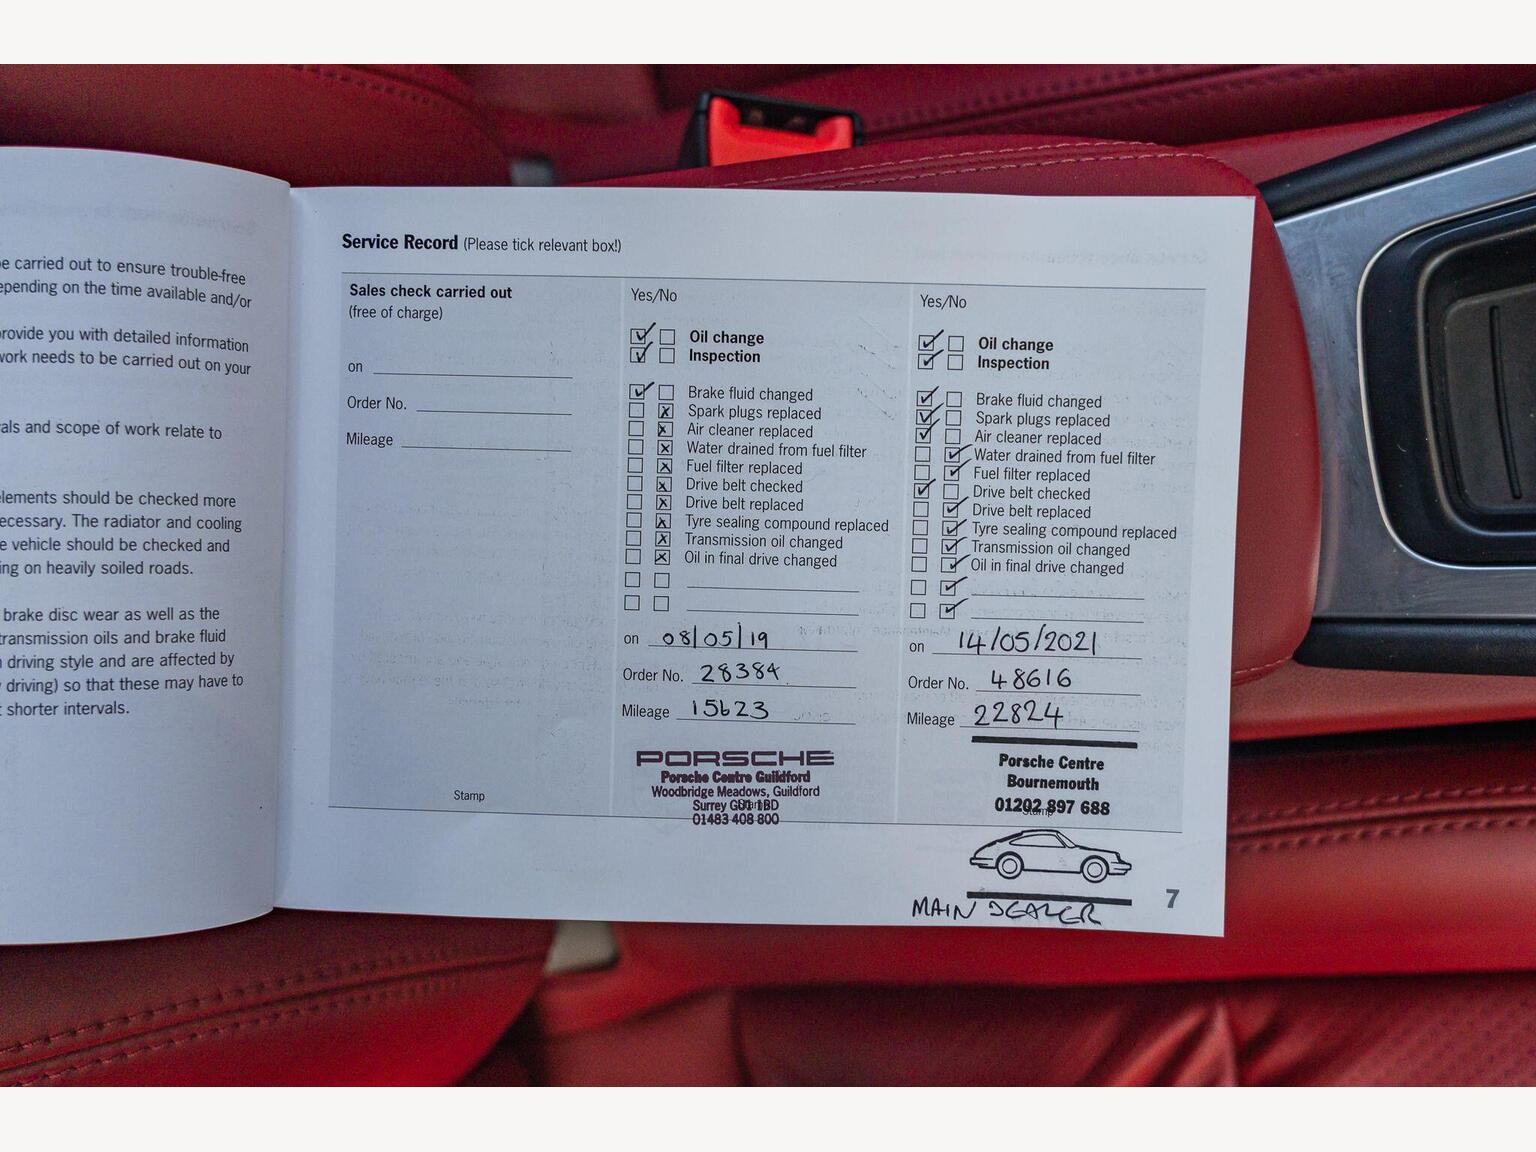 be carried out to ensure trouble-free
epending on the time available and/or
provide you with detailed information
work needs to be carried out on your
als and scope of work relate to
elements should be checked more
ecessary. The radiator and cooling
e vehicle should be checked and
ing on heavily soiled roads.
brake disc wear as well as the
transmission oils and brake fluid
driving style and are affected by
driving) so that these may have to
shorter intervals.
Service Record (Please tick relevant box!)
Sales check carried out
(free of charge)
on
Order No.
Mileage
Stamp
Yes/No
Oil change
Inspection
Brake fluid changed
Spark plugs replaced
Air cleaner replaced
Water drained from fuel filter
Fuel filter replaced
Drive belt checked
Drive belt replaced
Tyre sealing compound replaced
Transmission oil changed
Oil in final drive changed
on 08/05/19
Order No. 28384
Mileage 15623
PORSCHE
Porsche Centre Guildford
Woodbridge Meadows, Guildford
Surrey GU1 1BD
Stamp
01483 408 800
Yes/No
Oil change
Inspection
Brake fluid changed
Spark plugs replaced
Air cleaner replaced
Water drained from fuel filter
Fuel filter replaced
Drive belt checked
Drive belt replaced
Tyre sealing compound replaced
Transmission oil changed
Oil in final drive changed
on 14/05/2021
Order No. 48616
Mileage 22824
Porsche Centre
Bournemouth
01202 897 688
Stamp
MAIN DEALER
7